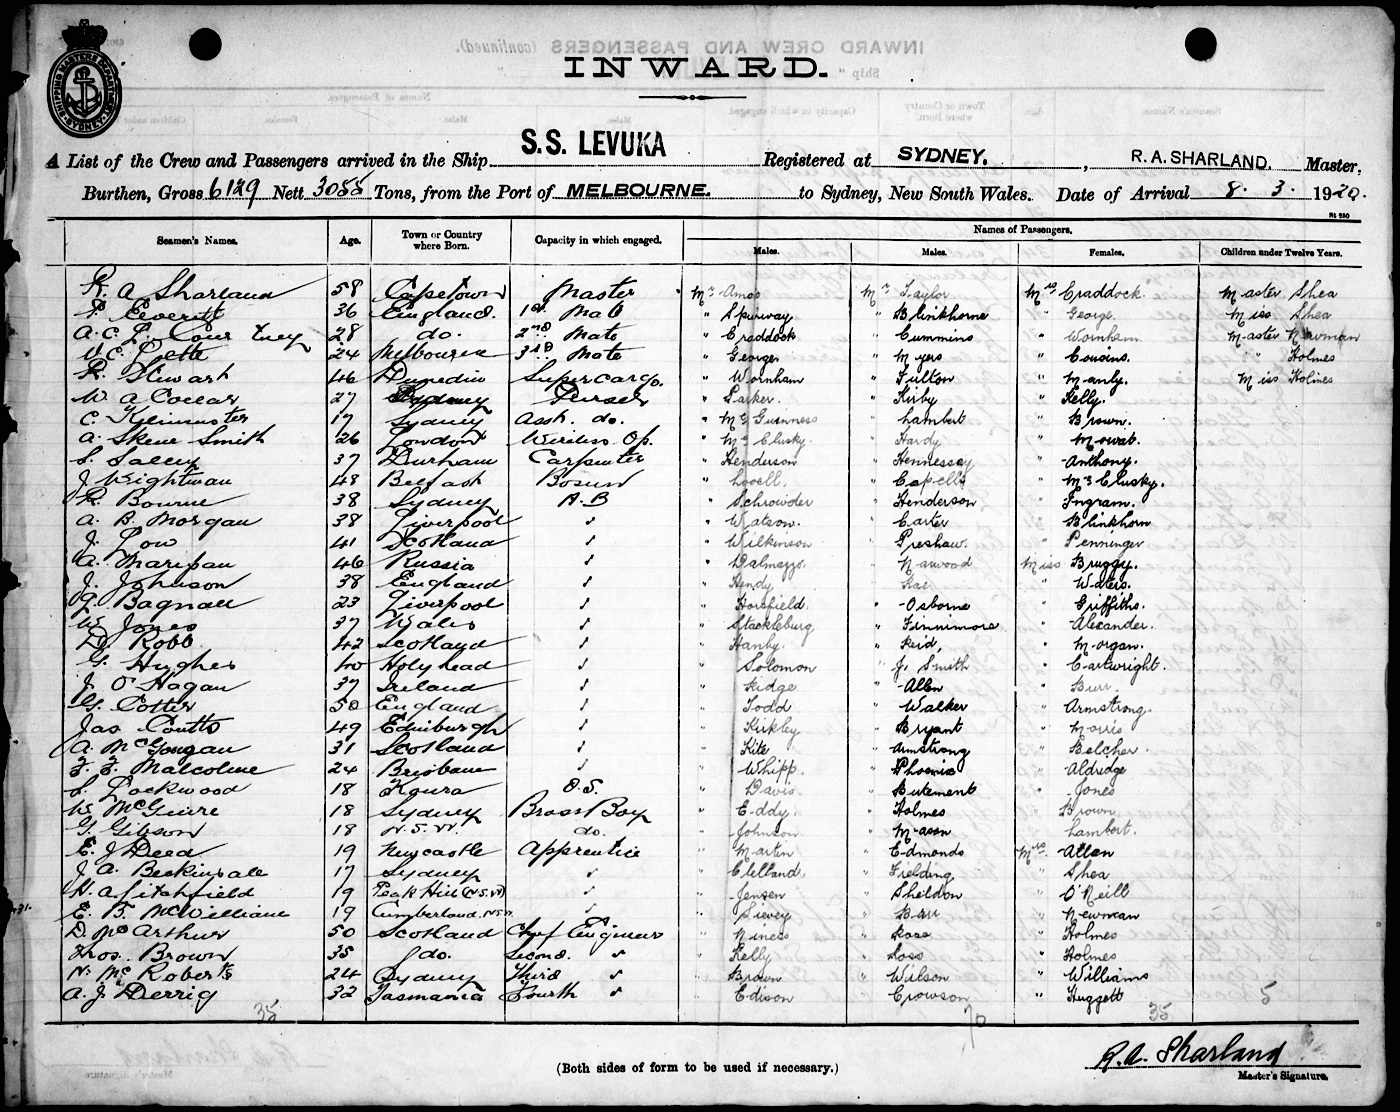 SHIPPING MASTERS DEPARTMENT
SYDNEY
INWARD.
A List of the Crew and Passengers arrived in the Ship S.S. LEVUKA Registered at SYDNEY. , R. A. SHARLAND. Master,
Burthen, Gross 6129 Nett 3055 Tons, from the Port of MELBOURNE. to Sydney, New South Wales. Date of Arrival 8. 3. 1920.
Seamen's Names. Age. Town or Country where Born. Capacity in which engaged. Names of Passengers.
Males. Males. Females. Children under Twelve Years.
R. A Sharland 58 Capetown Master Mr Amos Mr Taylor Mrs Craddock. Master Shea
Everitt 36 England. 1st Mate " Spurway " Blinkhorne " George. Miss Shea
A. C. L. Courtney 28 do. 2nd Mate " Craddock " Cummins " Wornham Master Newman
24 Melbourne 3rd Mate " George " Myers " Cousins. " Holmes
R. Stewart 46 Dunedin Supercargo. " Wornham " Fulton " Manly. Miss Holmes
W. A Collar 27 Sydney Purser " Parker. " Kirby " Kelly.
C. 17 Sydney Asst. do. " McGuinness " Lambert " Brown.
A. Skene Smith 26 London Wireless Op. " McClusky. " Hardy " Mowat.
S. Salley 37 Durham Carpenter " Henderson " Hennessey " Anthony.
J. Weightman 48 Belfast Bosun " Lovell. " Capelli " McClusky.
R. Bourne 38 Sydney A.B " Schrowder " Henderson " Ingram.
A. B. Morgan 38 Liverpool " " Watson. " Carter " Blinkhorn
J. Low 41 Scotland " " Wilkinson " Preshaw. " Penninger
A. 46 Russia " " Dalmazzo. " Narwood Miss Bruggy.
J. Johnson 38 England " " Hendy " " Waters.
Bagnall 23 Liverpool " " Horsfield. " Osborne " Griffiths.
W. Jones 37 Wales " " Stackleburg " Finnimore " Alexander.
D. Robb 42 Scotland " " Hanby. " Reid, " Morgan.
G. Hughes 40 Holyhead " " Solomon " J. Smith " Cartwright.
J. O'Hagan 37 Ireland " " Ridge " Allen " Burr.
G. Cotter 50 England " " Todd " Walker " Armstrong.
Jas Coutts 49 Edinburgh " " Kirkley " Bryant " Morris
A. McGougan 31 Scotland " " Kite " Armstrong " Belcher.
F. F. Malcolme 24 Brisbane " " Whipp. " Phoenix " Aldridge
S. Lockwood 18 O.S. " Davis " Butement " Jones
W. McGuire 18 Sydney Brass Boy " Eddy " Holmes " Brown
G. Gibson 18 N.S.W. do. " Johnson " Mason " Lambert.
E. J Deed 19 Newcastle Apprentice " Martin " Edmonds Mrs. Allen
J. A. Beckinsale 17 Sydney " " Clelland. " Fielding " Shea
A Litchfield 19 Peak Hill (N.S.W) " " Jensen " Sheldon " O'Neill
E. F. McWilliam 19 Cumberland. N.S.W. " " Sievey " Barr " Newman
D. McArthur 50 Scotland Chief Engineer " Niness " Ross " Holmes
Thos. Brown 35 do. Second. " " Kelly " Loss " Holmes
N. McRoberts 24 Sydney Third " " Brown " Wilson " Williams
A. J. Derrig 32 Tasmania Fourth " " Edison " Crowson " Huggett 5
35 70 35
(Both sides of form to be used if necessary.)
R. A. Sharland
Master's Signature.